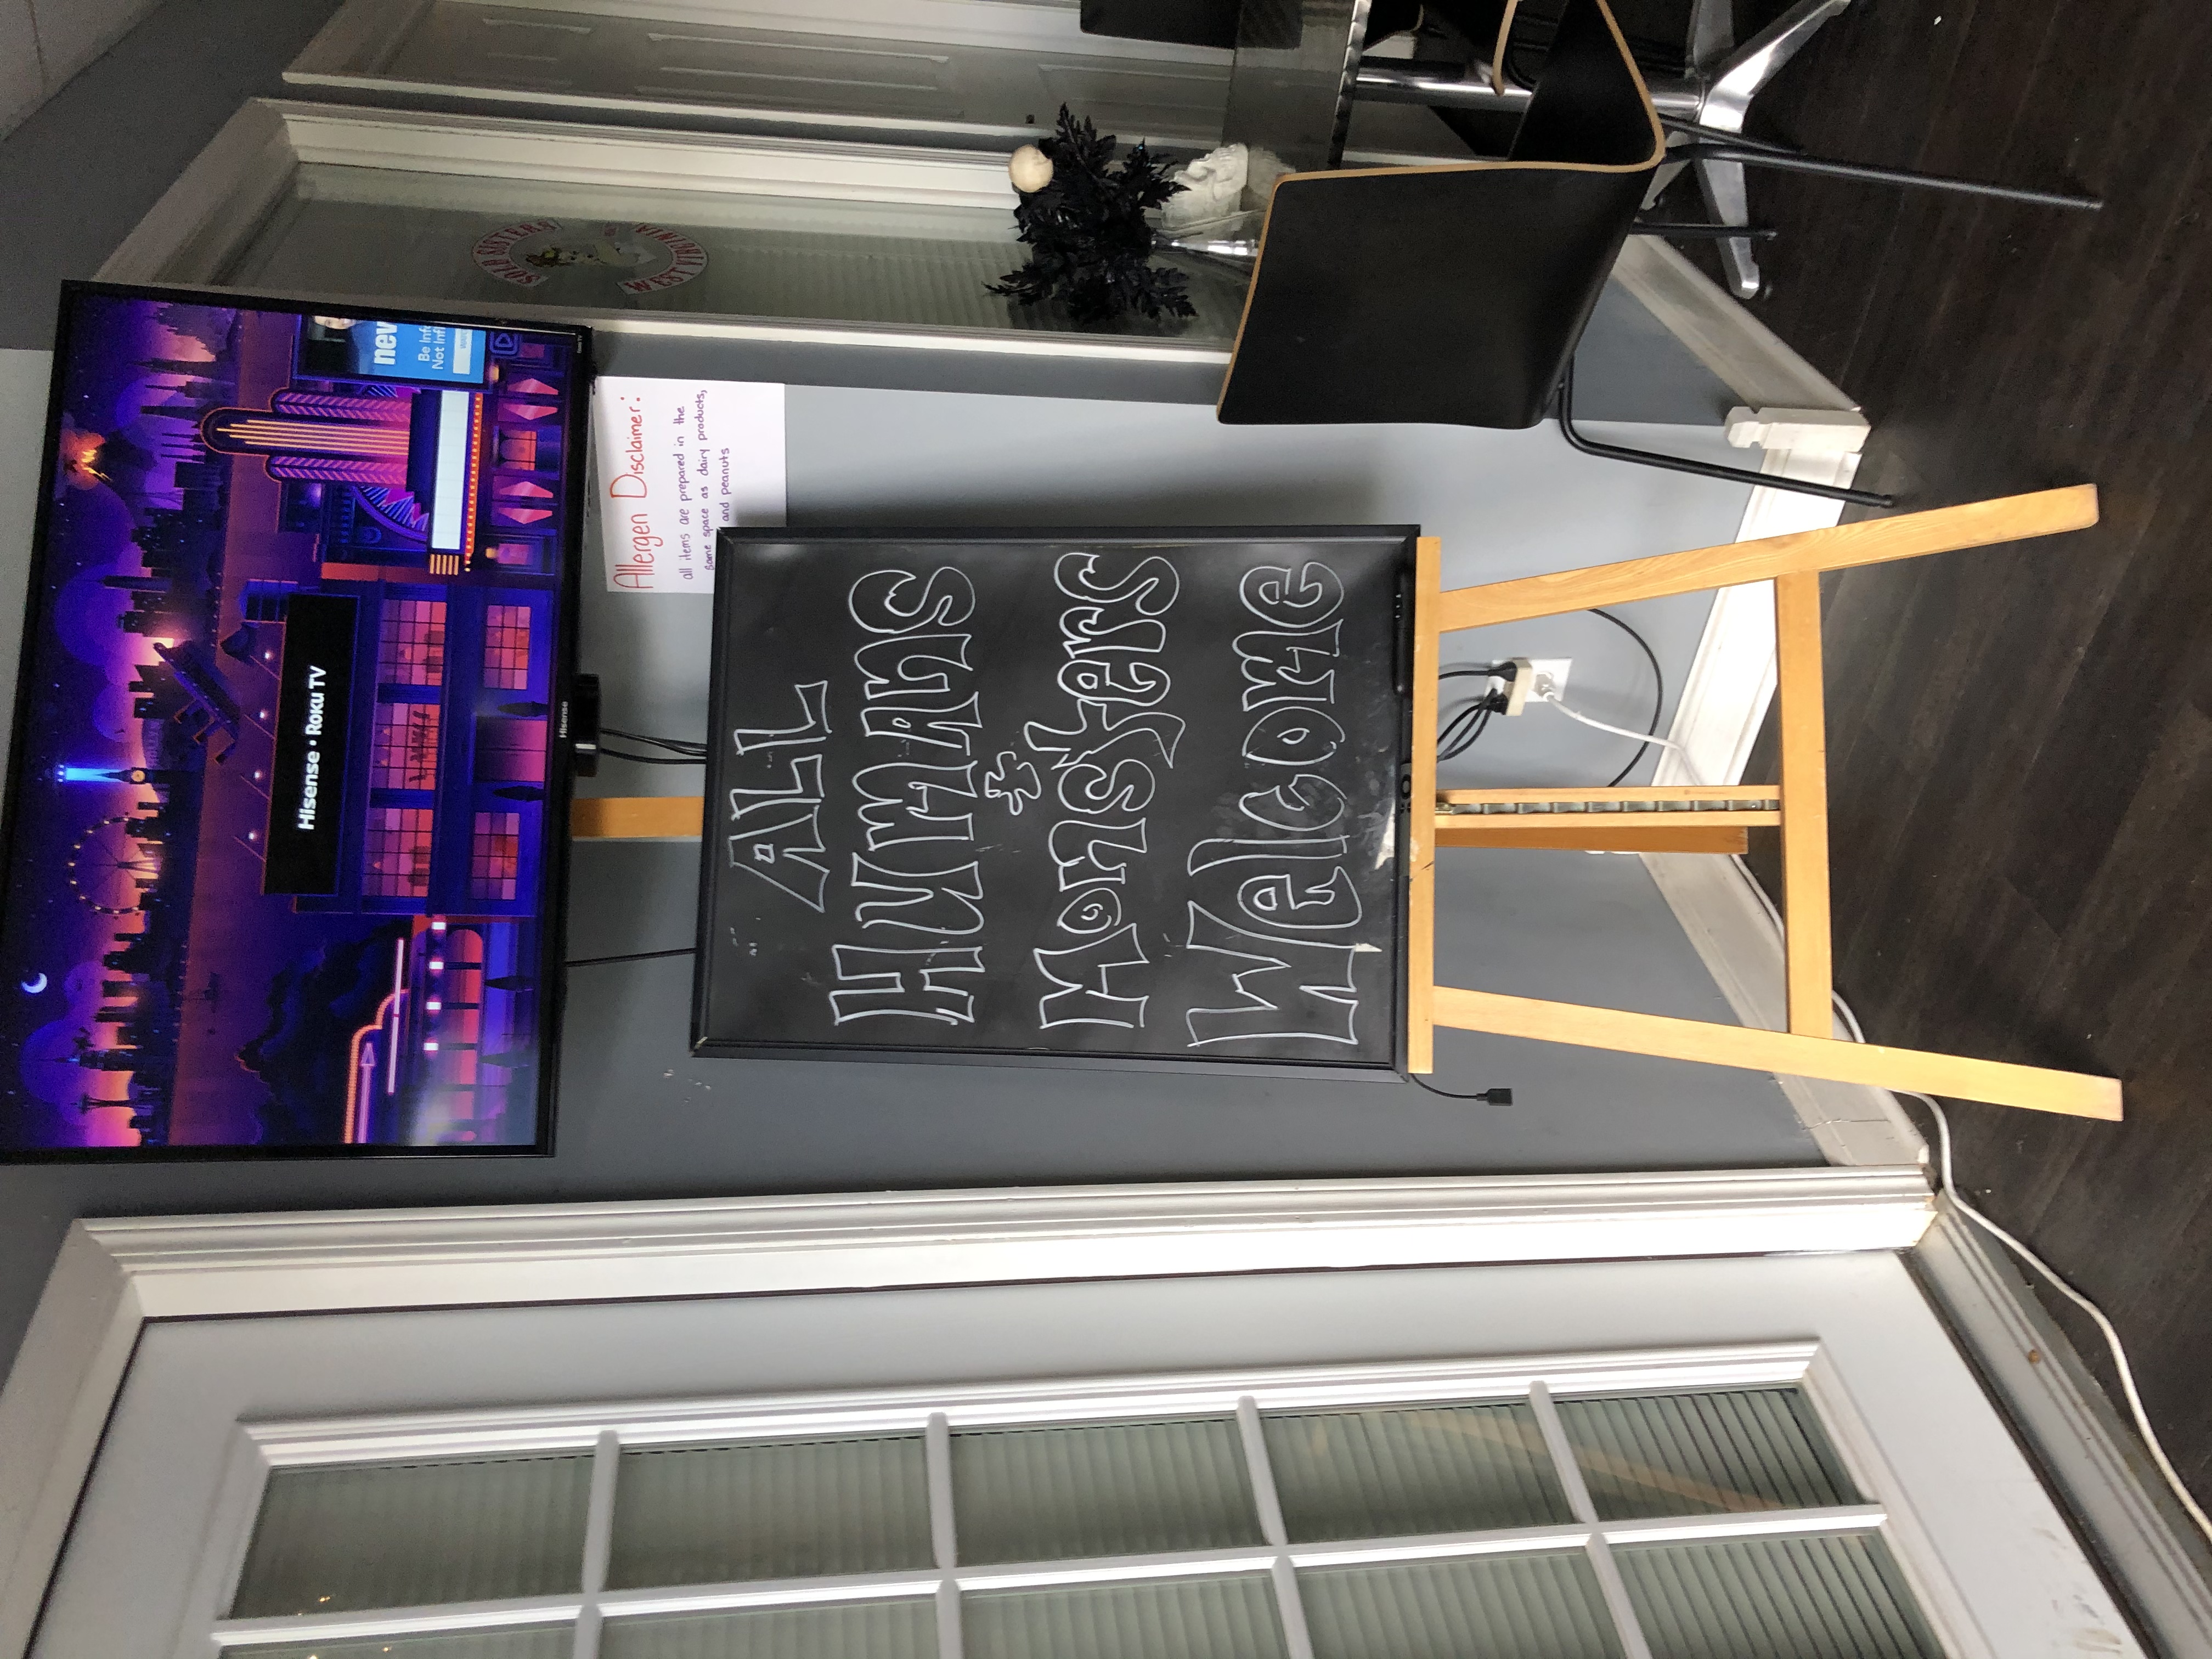 Hisense • Roku TV
new
Be Info
Not Infl
Hisense
Roku TV
SOLD SISTERS
WEST VIRGINIA
Allergen Disclaimer:
all items are prepared in the
same space as dairy products,
and peanuts
ALL
Humans
&
Monsters
Welcome